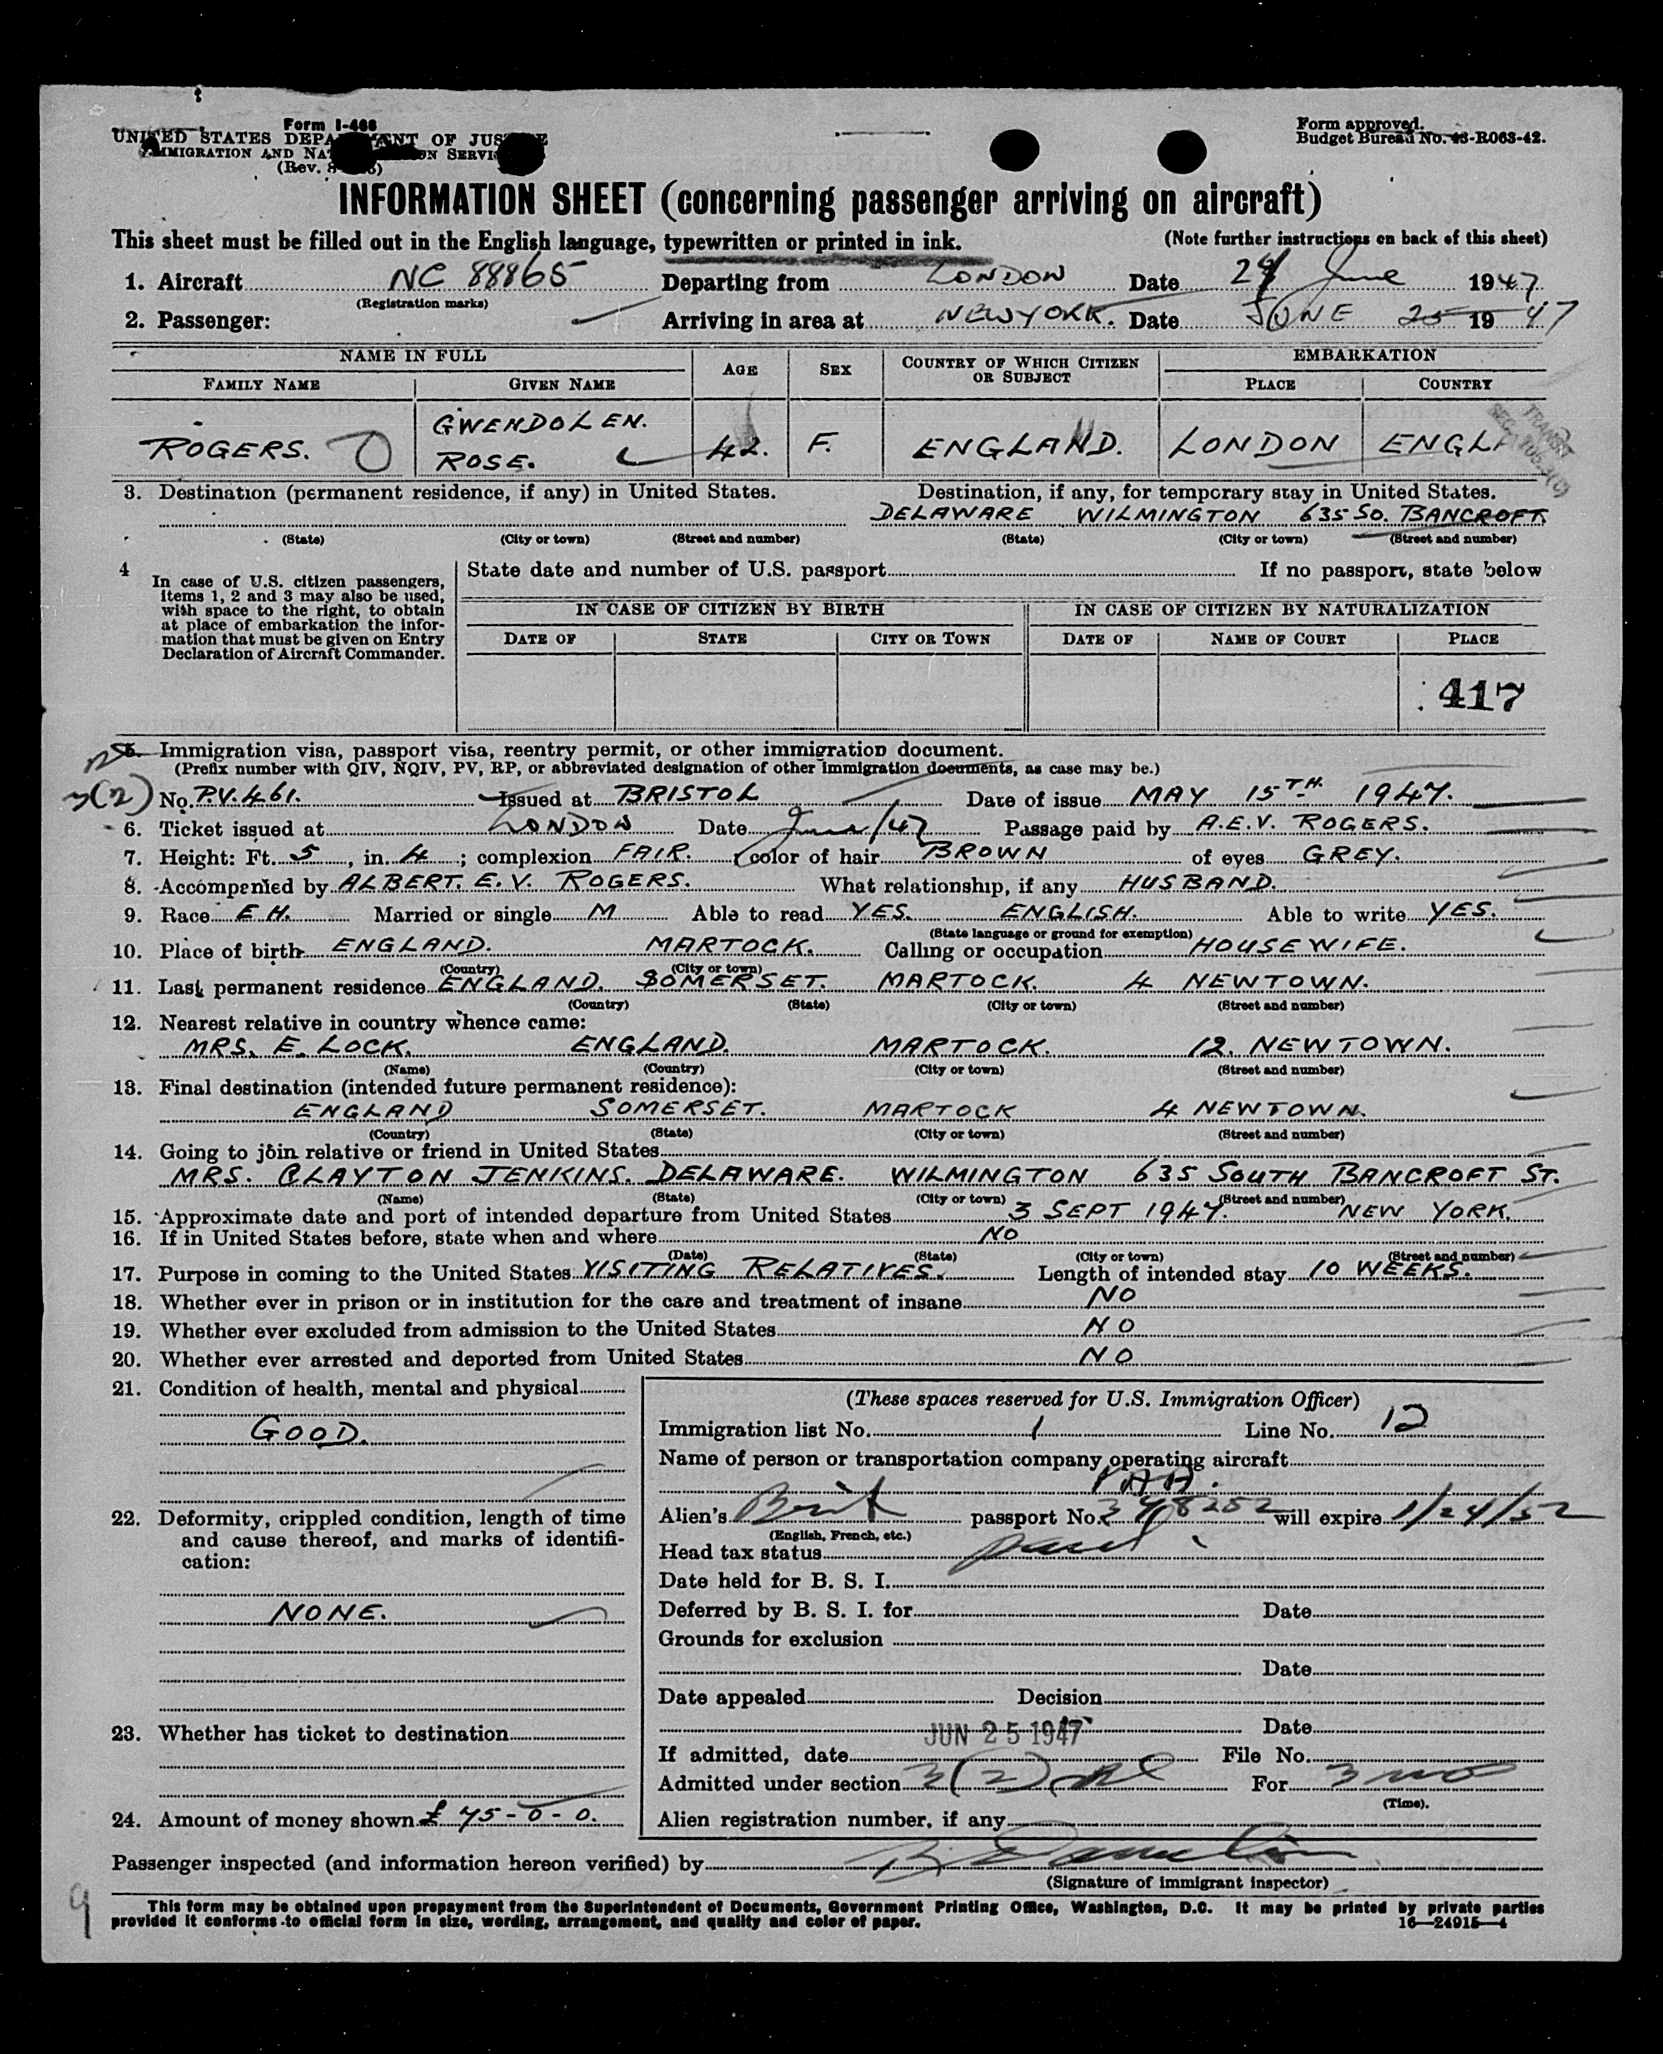 Form I-466
UNITED STATES DEPARTMENT OF JUSTICE
IMMIGRATION AND NATURALIZATION SERVICE
(Rev.
Form approved.
Budget Bureau No. 43-R063-42.
INFORMATION SHEET (concerning passenger arriving on aircraft)
This sheet must be filled out in the English language, typewritten or printed in ink. (Note further instructions on back of this sheet)
1. Aircraft NC 88865 Departing from LONDON Date 24 June 1947
(Registration marks)
2. Passenger: Arriving in area at NEW YORK. Date JUNE 25 1947
NAME IN FULL AGE SEX COUNTRY OF WHICH CITIZEN OR SUBJECT EMBARKATION
FAMILY NAME GIVEN NAME PLACE COUNTRY
ROGERS. GWENDOLEN. ROSE. 42. F. ENGLAND. LONDON ENGL
TRANSIT
3. Destination (permanent residence, if any) in United States. Destination, if any, for temporary stay in United States.
DELAWARE WILMINGTON 635 SO. BANCROFT
(State) (City or town) (Street and number) (State) (City or town) (Street and number)
4 In case of U.S. citizen passengers, items 1, 2 and 3 may also be used, with space to the right, to obtain at place of embarkation the information that must be given on Entry Declaration of Aircraft Commander.
State date and number of U.S. passport If no passport, state below
IN CASE OF CITIZEN BY BIRTH IN CASE OF CITIZEN BY NATURALIZATION
DATE OF STATE CITY OR TOWN DATE OF NAME OF COURT PLACE
417
5. Immigration visa, passport visa, reentry permit, or other immigration document.
(Prefix number with QIV, NQIV, PV, RP, or abbreviated designation of other immigration documents, as case may be.)
3(2) No. P.V. 461. Issued at BRISTOL Date of issue MAY 15TH 1947.
6. Ticket issued at LONDON Date June/47 Passage paid by A.E.V. ROGERS.
7. Height: Ft. 5, in. 4; complexion FAIR. color of hair BROWN of eyes GREY.
8. Accompanied by ALBERT. E. V. ROGERS. What relationship, if any HUSBAND.
9. Race E H. Married or single M Able to read YES. ENGLISH. Able to write YES.
(State language or ground for exemption)
10. Place of birth ENGLAND. MARTOCK. Calling or occupation HOUSEWIFE.
(Country) (City or town)
11. Last permanent residence ENGLAND. SOMERSET. MARTOCK. 4 NEWTOWN.
(Country) (State) (City or town) (Street and number)
12. Nearest relative in country whence came:
MRS. E. LOCK. ENGLAND. MARTOCK. 12. NEWTOWN.
(Name) (Country) (City or town) (Street and number)
13. Final destination (intended future permanent residence):
ENGLAND SOMERSET. MARTOCK 4 NEWTOWN.
(Country) (State) (City or town) (Street and number)
14. Going to join relative or friend in United States
MRS. CLAYTON JENKINS. DELAWARE. WILMINGTON 635 SOUTH BANCROFT ST.
(Name) (State) (City or town) (Street and number)
15. Approximate date and port of intended departure from United States 3 SEPT 1947. NEW YORK.
16. If in United States before, state when and where NO
(Date) (State) (City or town) (Street and number)
17. Purpose in coming to the United States VISITING RELATIVES. Length of intended stay 10 WEEKS.
18. Whether ever in prison or in institution for the care and treatment of insane NO
19. Whether ever excluded from admission to the United States NO
20. Whether ever arrested and deported from United States NO
21. Condition of health, mental and physical
GOOD.
22. Deformity, crippled condition, length of time and cause thereof, and marks of identification:
NONE.
23. Whether has ticket to destination
24. Amount of money shown £ 75-0-0.
(These spaces reserved for U.S. Immigration Officer)
Immigration list No. 1 Line No. 12
Name of person or transportation company operating aircraft
PAA.
Alien's Brit passport No. will expire 1/24/52
(English, French, etc.)
Head tax status
Date held for B. S. I.
Deferred by B. S. I. for Date
Grounds for exclusion
Date
Date appealed Decision
JUN 25 1947 Date
If admitted, date File No.
Admitted under section 3(2) For 3 mos
(Time).
Alien registration number, if any
Passenger inspected (and information hereon verified) by
(Signature of immigrant inspector)
9
This form may be obtained upon prepayment from the Superintendent of Documents, Government Printing Office, Washington, D.C. It may be printed by private parties
provided it conforms to official form in size, wording, arrangement, and quality and color of paper. 16—24915—4